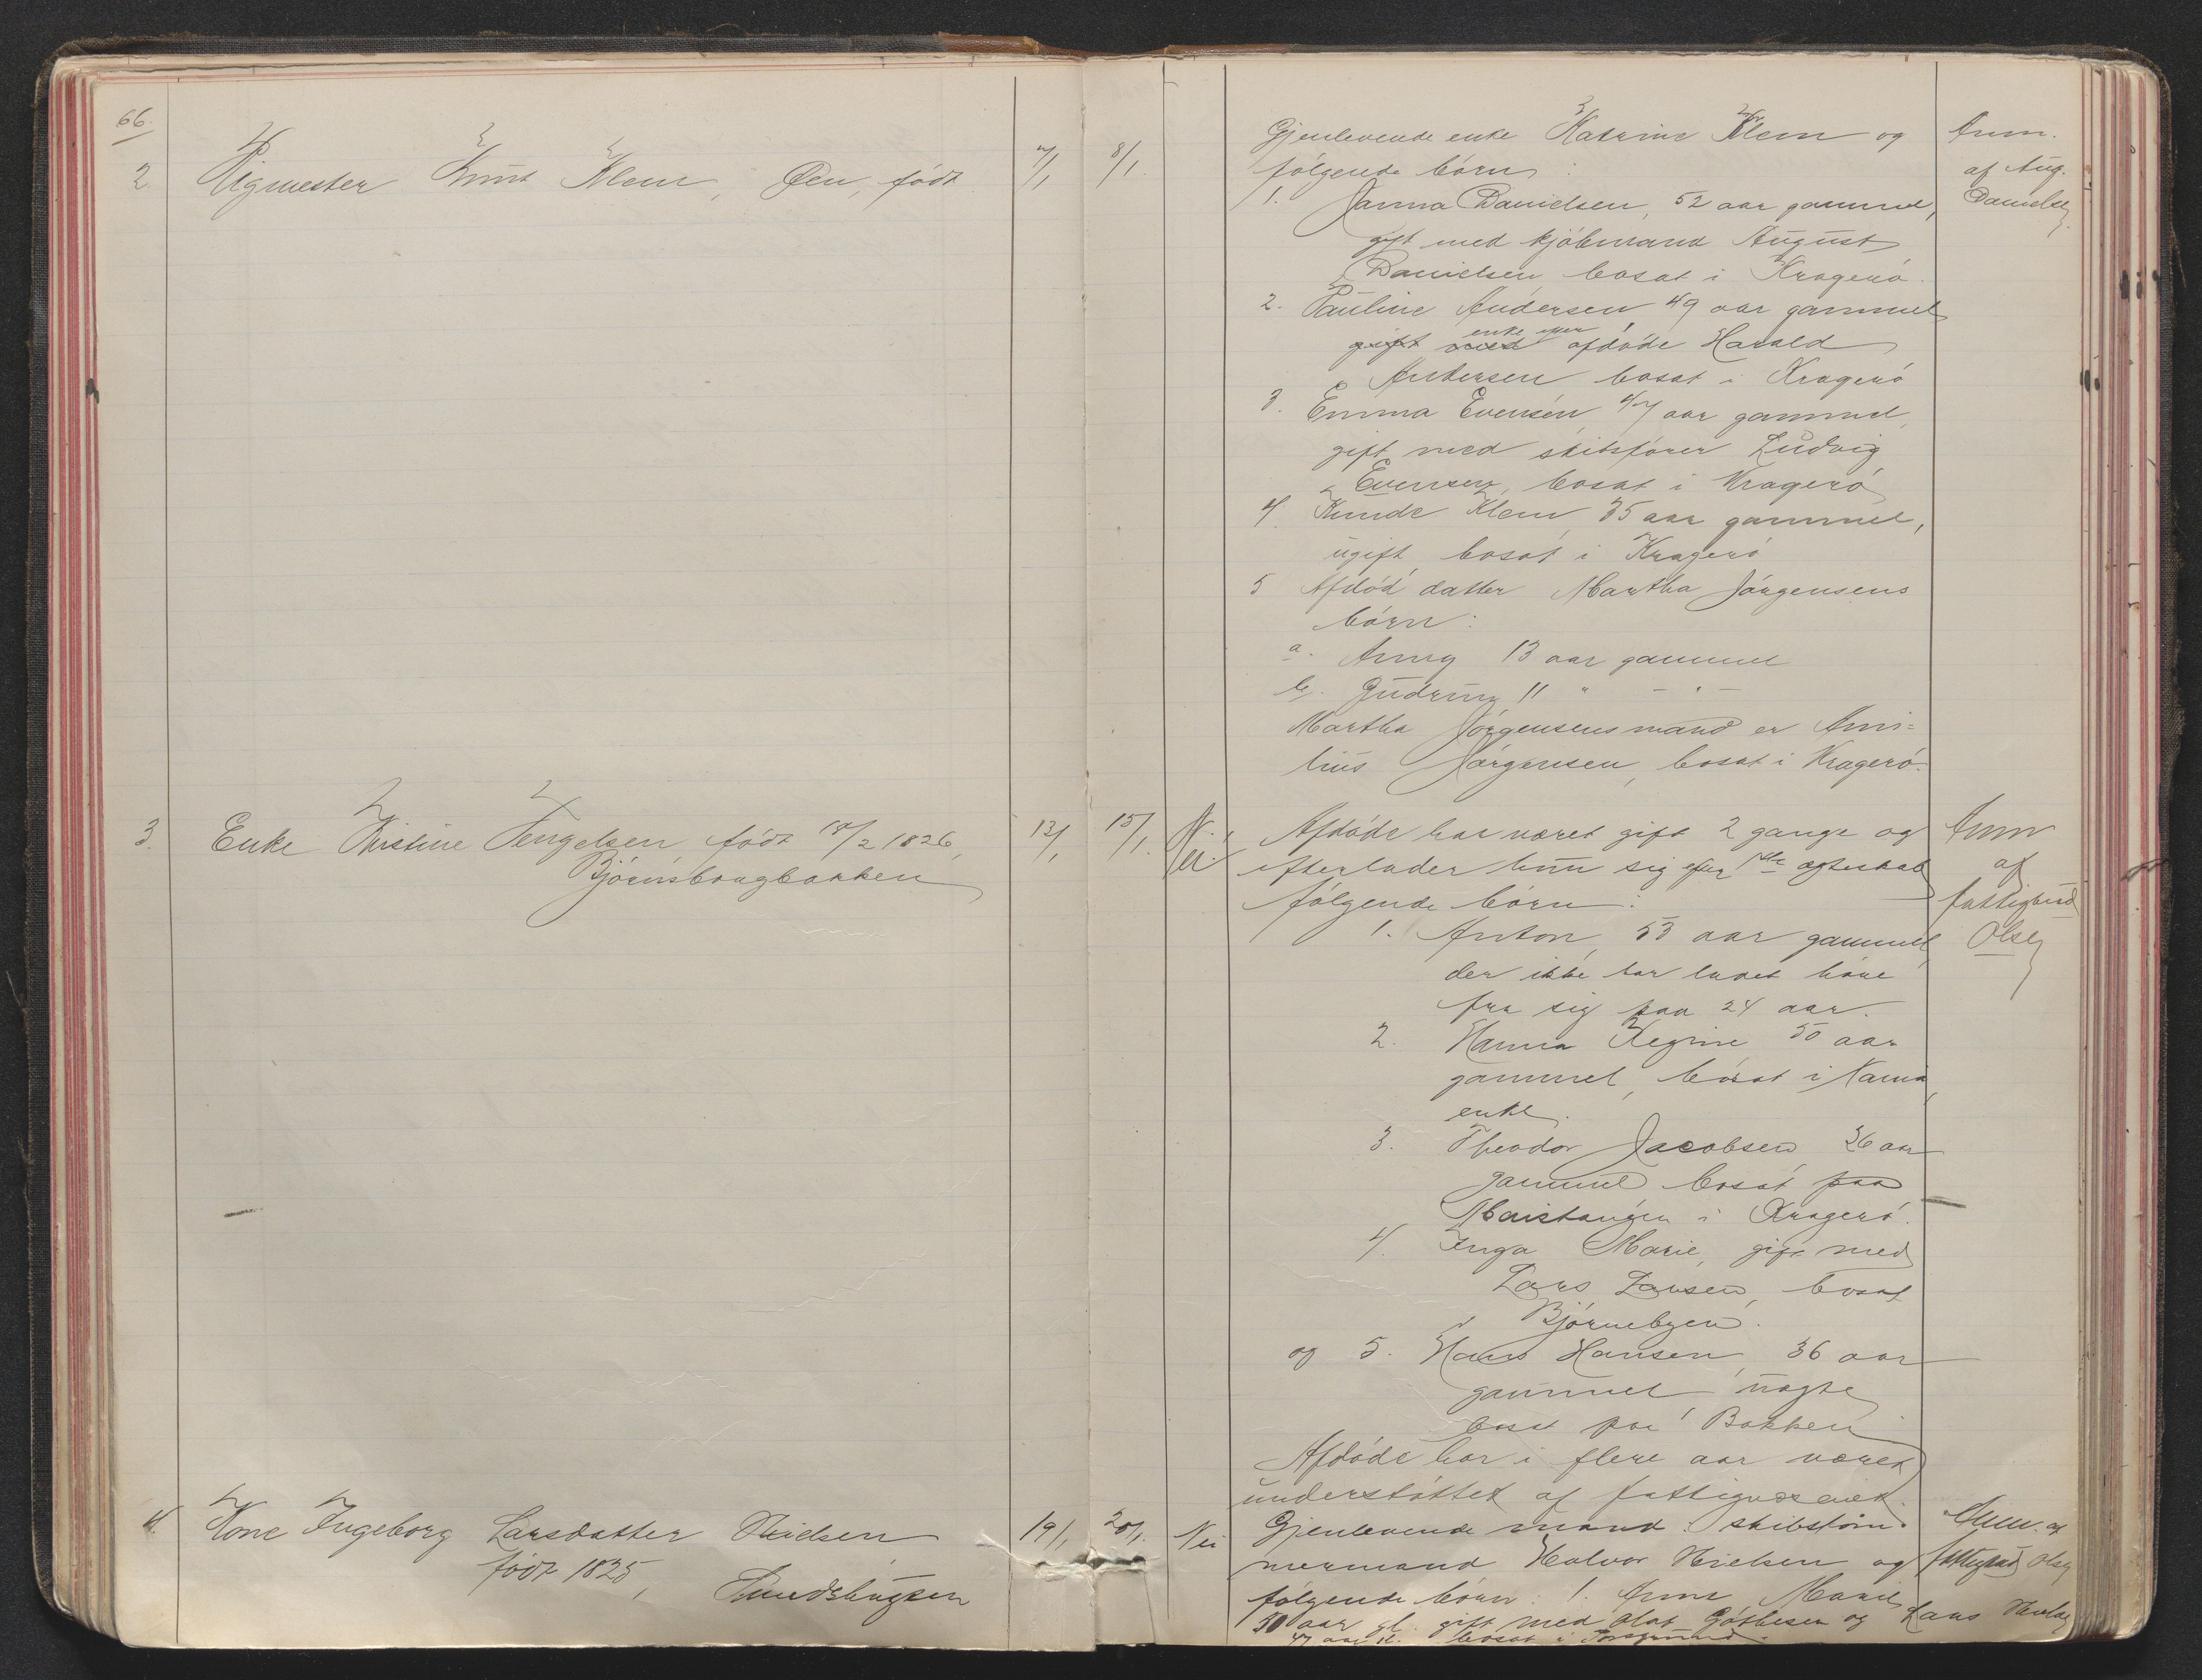 66.
2. Rigmester Knut Klem, Øen, født
7/1 8/1
Gjenlevende enke Katrine Klem og
følgende børn:
1. Janna Danielsen, 52 aar gammel,
gift med kjøbmand August
Danielsen, bosat i Kragerø.
2. Pauline Andersen 49 aar gammel
gift med enke efter afdøde Harald
Andersen bosat i Kragerø
3. Emma Evensen, 47 aar gammel,
gift med skibsfører Ludvig
Evensen, bosat i Kragerø
4. Klem 35 aar gammel,
ugift, bosat i Kragerø
5 Afdød datter Martha Jørgensens
børn:
a. Anny 13 aar gammel
b. Gudrun 11 " - " -
Martha Jørgensens mand er
Jørgensen, bosat i Kragerø.
Anm.
af Aug.
Danielsen
3. Enke Kristine Tengelsen født 18/2 1826,
Bjørnsborgbakken
13/1 15/1
Afdøde har været gift 2 gange og
efterlader hun sig efter 1ste ægteskab
følgende børn:
1. Anton, 53 aar gammel,
der ikke har ladet høre
fra sig paa 24 aar.
2. Hanna Regine 50 aar
gammel, bosat i
enke.
3. Theodor Jacobsen 36 aar
gammel bosat paa
i Kragerø.
4. Inga Marie, gift med
Lars Larsen, bosat
Bjørnebyen.
og 5. Hans Hansen, 36 aar
gammel,
bosat paa Bakken
Afdøde har i flere aar været
understøttet af fattigvæsenet.
Anm
af
fattigbud
Olsen
4. Kone Ingeborg Larsdatter Nielsen
født 1825,
19/1 20/1. Nei
Gjenlevende mand: skibstøm-
mermand Halvor Nielsen og
følgende børn: 1. Anne Marie
50 aar gl. gift med Olaf og Lars
47 aar gl. bosat i Porsgrund.
Anm. af
fattigbud Olsen